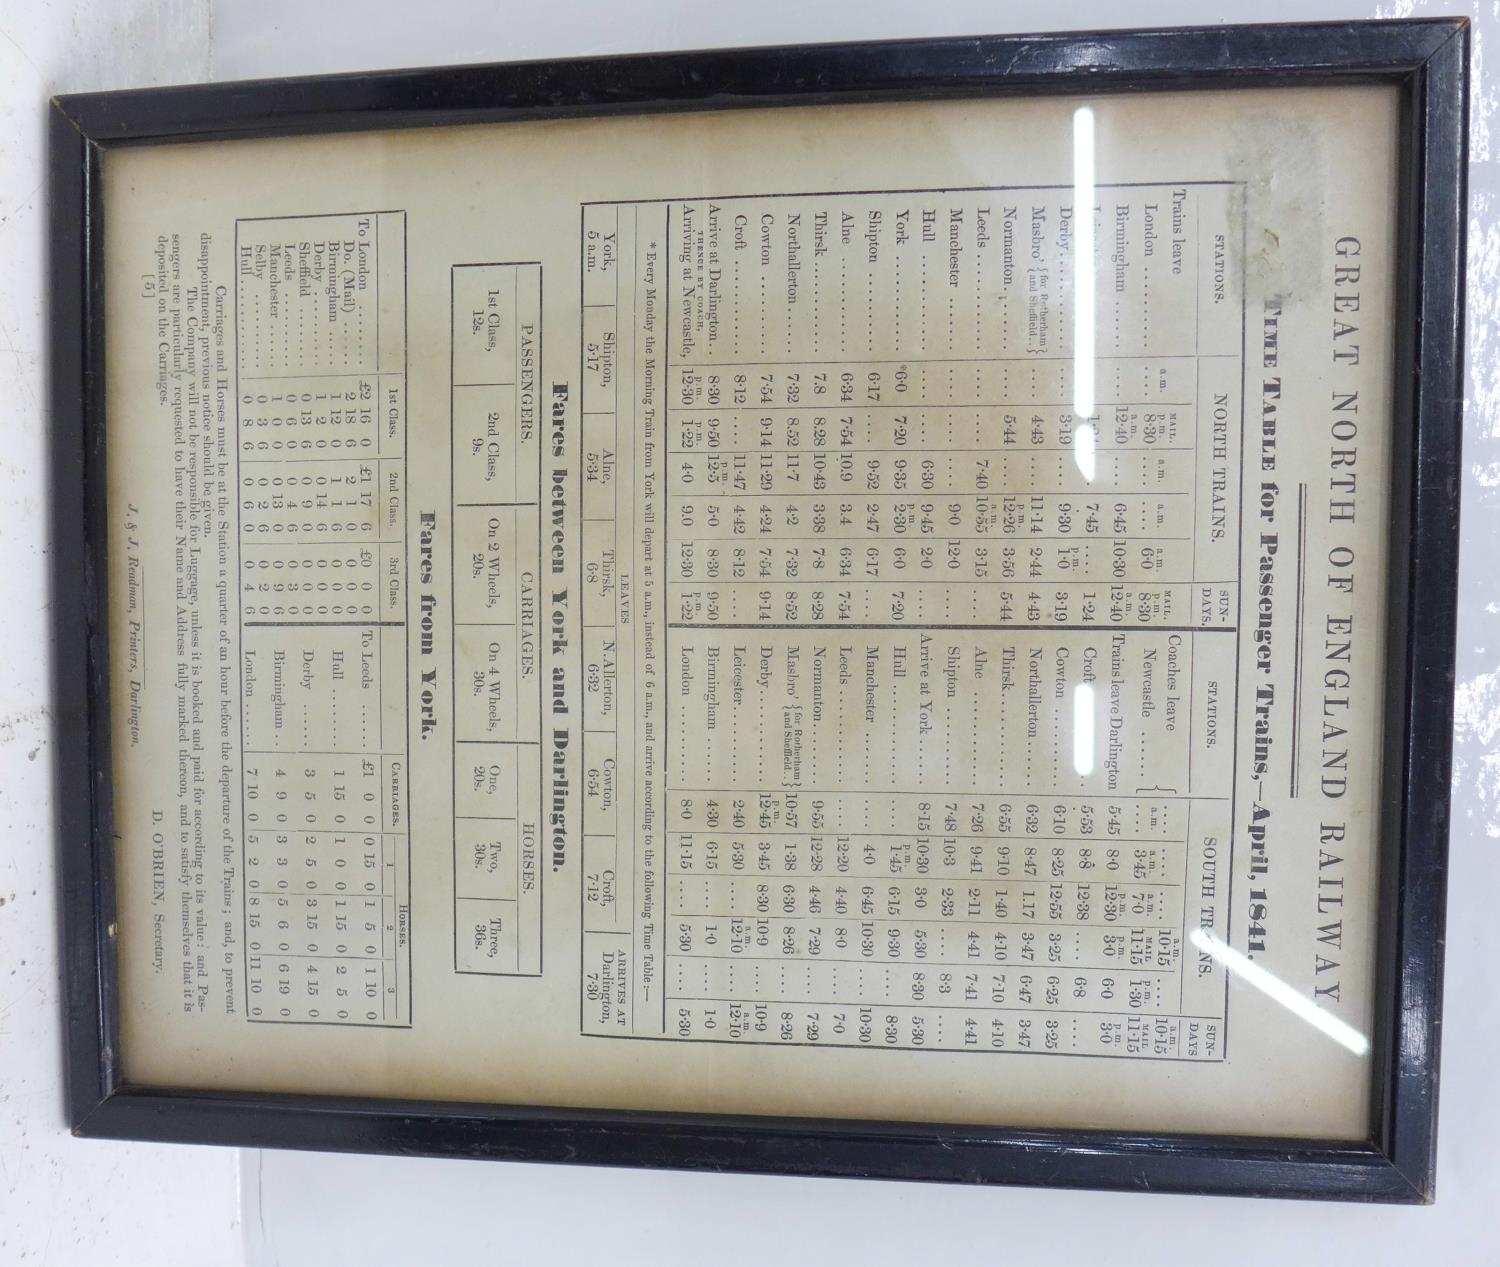 GREAT NORTH OF ENGLAND RAILWAY
TIME TABLE for Passenger Trains,—April, 1841.
STATIONS. NORTH TRAINS. SUN-DAYS. STATIONS. SOUTH TRAINS. SUN-DAYS
Trains leave a.m. MAIL. p.m. a.m. a.m. a.m. MAIL. p.m. Coaches leave .... .... .... a.m. 10·15 .... a.m. 10·15
London .... 8·30 .... .... 6·0 8·30 Newcastle a.m. .... a.m. 3·45 a.m. 7·0 MAIL 11·15 p.m. 1·30 MAIL 11·15
Birmingham .... a.m. 12·40 .... 6·45 10·30 a.m. 12·40 Trains leave Darlington 5·45 8·0 p.m. 12·30 p.m. 3·0 6·0 p.m. 3·0
.... .... 7·45 .... 1·24 Croft 5·53 8·8 12·38 .... 6·8 ....
Derby .... 3·19 .... 9·30 p.m. 1·0 3·19 Cowton 6·10 8·25 12·55 3·25 6·25 3·25
Masbro' {for Rotherham and Sheffield..} .... 4·43 .... 11·14 2·44 4·43 Northallerton 6·32 8·47 1.17 3·47 6·47 3·47
Normanton .... 5·44 .... p.m. 12·26 3·56 5·44 Thirsk 6·55 9·10 1·40 4·10 7·10 4·10
Leeds .... .... 7·40 a.m. 10·55 3·15 .... Alne 7·26 9·41 2·11 4·41 7·41 4·41
Manchester .... .... .... 9·0 12·0 .... Shipton 7·48 10·3 2·33 .... 8·3 ....
Hull .... .... 6·30 9·45 2·0 .... Arrive at York 8·15 10·30 3·0 5·30 8·30 5·30
York *6·0 7·20 9·35 p.m. 2·30 6·0 7·20 Hull .... p.m. 1·45 6·15 9·30 .... 8·30
Shipton 6·17 .... 9·52 2·47 6·17 .... Manchester .... 4·0 6·45 10·30 .... 10·30
Alne 6·34 7·54 10.9 3.4 6·34 7·54 Leeds .... 12·20 4·40 8·0 .... 7·0
Thirsk 7.8 8.28 10·43 3·38 7·8 8·28 Normanton 9·55 12·28 4·46 7·29 .... 7·29
Northallerton 7·32 8.52 11·7 4·2 7·32 8·52 Masbro' {for Rotherham and Sheffield..} 10·57 1·38 6·30 8·26 .... 8·26
Cowton 7·54 9·14 11·29 4·24 7·54 9·14 Derby p.m. 12·45 3·45 8·30 10·9 .... 10·9
Croft 8·12 .... 11·47 4·42 8·12 .... Leicester 2·40 5·30 .... a.m. 12·10 .... a.m. 12·10
Arrive at Darlington 8·30 9·50 p.m. 12·5 5·0 8·30 9·50 Birmingham 4·30 6·15 .... 1·0 .... 1·0
THENCE BY COACH,
Arriving at Newcastle, p.m. 12·30 p.m. 1·22 4·0 9.0 12·30 p.m. 1·22 London 8·0 11·15 .... 5·30 .... 5·30
* Every Monday the Morning Train from York will depart at 5 a.m., instead of 6 a.m., and arrive according to the following Time Table:—
LEAVES ARRIVES AT
York, Shipton, Alne, Thirsk, N.Allerton, Cowton, Croft, Darlington,
5 a.m. 5·17 5·34 6·8 6·32 6·54 7·12 7·30
Fares between York and Darlington.
PASSENGERS. CARRIAGES. HORSES.
1st Class, 2nd Class, On 2 Wheels, On 4 Wheels, One, Two, Three,
12s. 9s. 20s. 30s. 20s. 30s. 36s.
Fares from York.
1st Class. 2nd Class. 3rd Class. CARRIAGES. HORSES.
1 2 3
To London £2 16 0 £1 17 6 £0 0 0 To Leeds £1 0 0 0 15 0 1 5 0 1 10 0
Do. (Mail) 2 18 6 2 1 0 0 0 0
Birmingham 1 12 0 1 1 6 0 0 0 Hull 1 15 0 1 0 0 1 15 0 2 5 0
Derby 1 2 0 0 14 6 0 0 0
Sheffield 0 13 6 0 9 0 0 0 0 Derby 3 5 0 2 5 0 3 15 0 4 15 0
Leeds 0 6 0 0 4 6 0 3 0
Manchester 1 0 0 0 13 0 0 9 6 Birmingham 4 9 0 3 3 0 5 6 0 6 19 0
Selby 0 3 6 0 2 6 0 2 0
Hull 0 8 6 0 6 0 0 4 6 London 7 10 0 5 2 0 8 15 0 11 10 0
Carriages and Horses must be at the Station a quarter of an hour before the departure of the Trains; and, to prevent
disappointment, previous notice should be given.
The Company will not be responsible for Luggage, unless it is booked and paid for according to its value: and Pas-
sengers are particularly requested to have their Name and Address fully marked thereon, and to satisfy themselves that it is
deposited on the Carriages.
D. O'BRIEN, Secretary.
[5]
J. & J. Readman, Printers, Darlington.